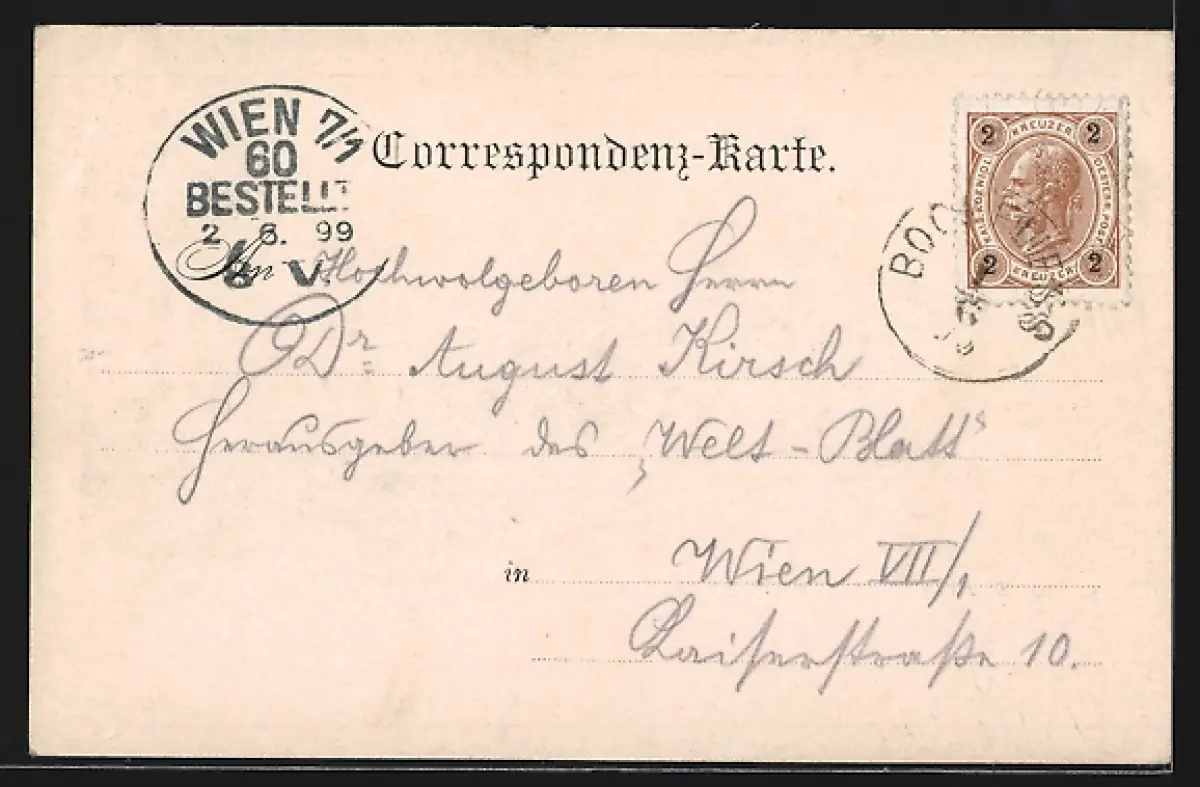 WIEN 7/1
60
BESTELLT
2. 8. 99
6 V.
Correspondenz-Karte.
2 KREUZER 2
2 KREUZER 2
BOC
An Hochwolgeboren Herrn
Dr. August Kirsch
Herausgeber des „Welt-Blatt“
in Wien VII/1
Kaiserstraße 10.